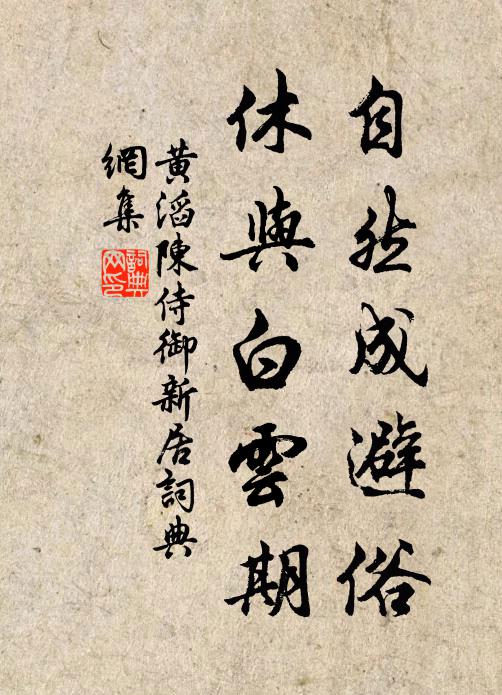 自然成避俗
休與白雲期
黃滔陳侍御新居詞典
網集
詞典
网印